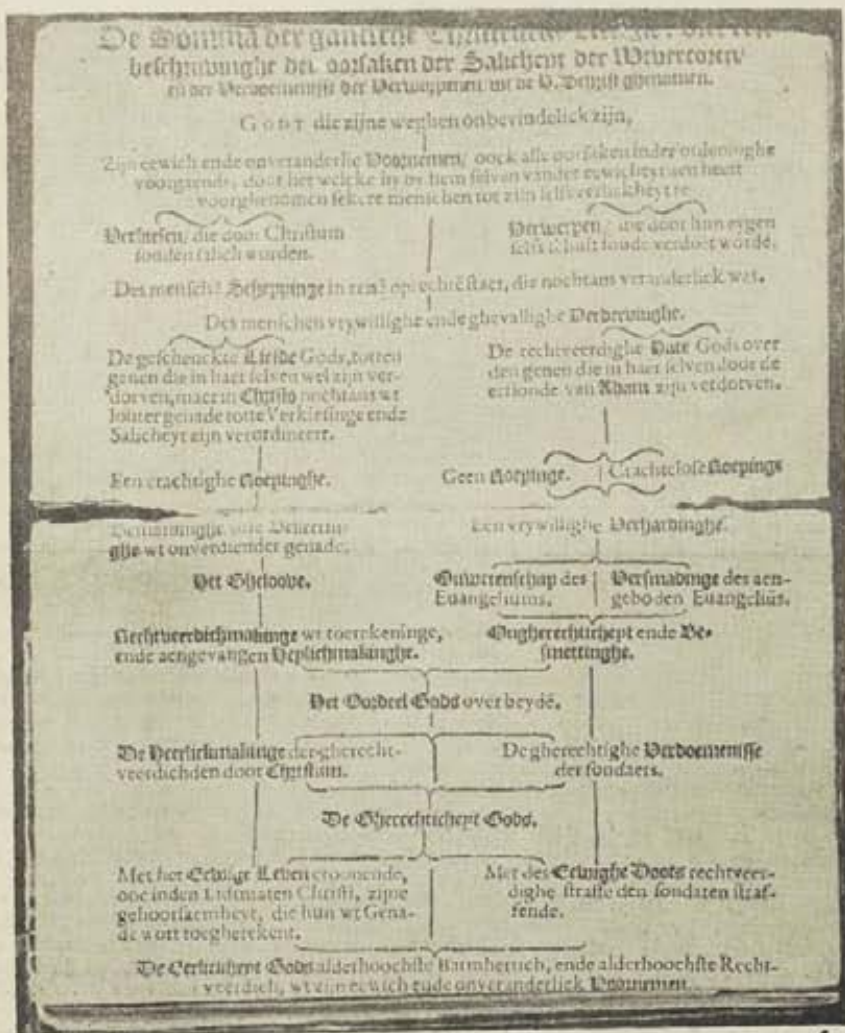 De Somma der gantsche
beschrivinghe der oorsaken der Salicheyt der
en der Verdoemenisse der Verworpenen, wt de H. Schrift ghenomen.
GODT die zijne weghen onbevindelick zijn,
Zijn eewich ende onveranderlic Voornemen, oock alle oorsaken inder ordeninghe
voorgaende, door het welcke hy by hem selven vander eewicheyt aen heeft
voorghenomen sekere menschen tot zijn selfs eerlickheyt te
Verkiesen, die door Christum
souden salich worden.
Verwerpen, die door hun eygen
schult soude verdoet wordē.
Des menschē Scheppinge in eenē oprechtē staet, die nochtans veranderlick was.
Des menschen vrywillighe ende ghevallighe Verdervinghe.
De geschenckte Liefde Gods, totten
genen die in haer selven wel zijn ver-
dorven, maer in Christo nochtans wt
louter genade totte Verkiesinge ende
Salicheyt zijn verordineert.
De rechtveerdighe Hate Gods over
den genen die in haer selven door de
erfsonde van Adam zijn verdorven.
Een crachtighe Roepinghe.
Geen Roepinge.
Crachtelose Roepinge
ghe wt onverdiender genade.
Een vrywillighe Verhardinghe.
Het Gheloove.
Onwetenschap des
Euangeliums.
Versmadinge des aen-
geboden Euangeliūs.
Rechtveerdichmakinge wt toerekeninge,
ende aengevangen Heylichmakinghe.
Ongherechticheyt ende Be-
smettinghe.
Het Oordeel Gods over beydē.
De Heerlickmakinge der gherecht-
veerdichden door Christum.
De gherechtighe Verdoemenisse
der sondaers.
De Gherechticheyt Gods.
Met het Eewige Leven croonende,
ooc inden Lidtmaten Christi, zijne
gehoorsaemheyt, die hun wt Gena-
de wort toegherekent.
Met des Eewighe Doots rechtveer-
dighe straffe den sondaren straf-
fende.
De Eerlicheyt Gods alderhoochste Barmhertich, ende alderhoochste Recht-
veerdich, wt zijn eewich ende onveranderlick Voornemen.